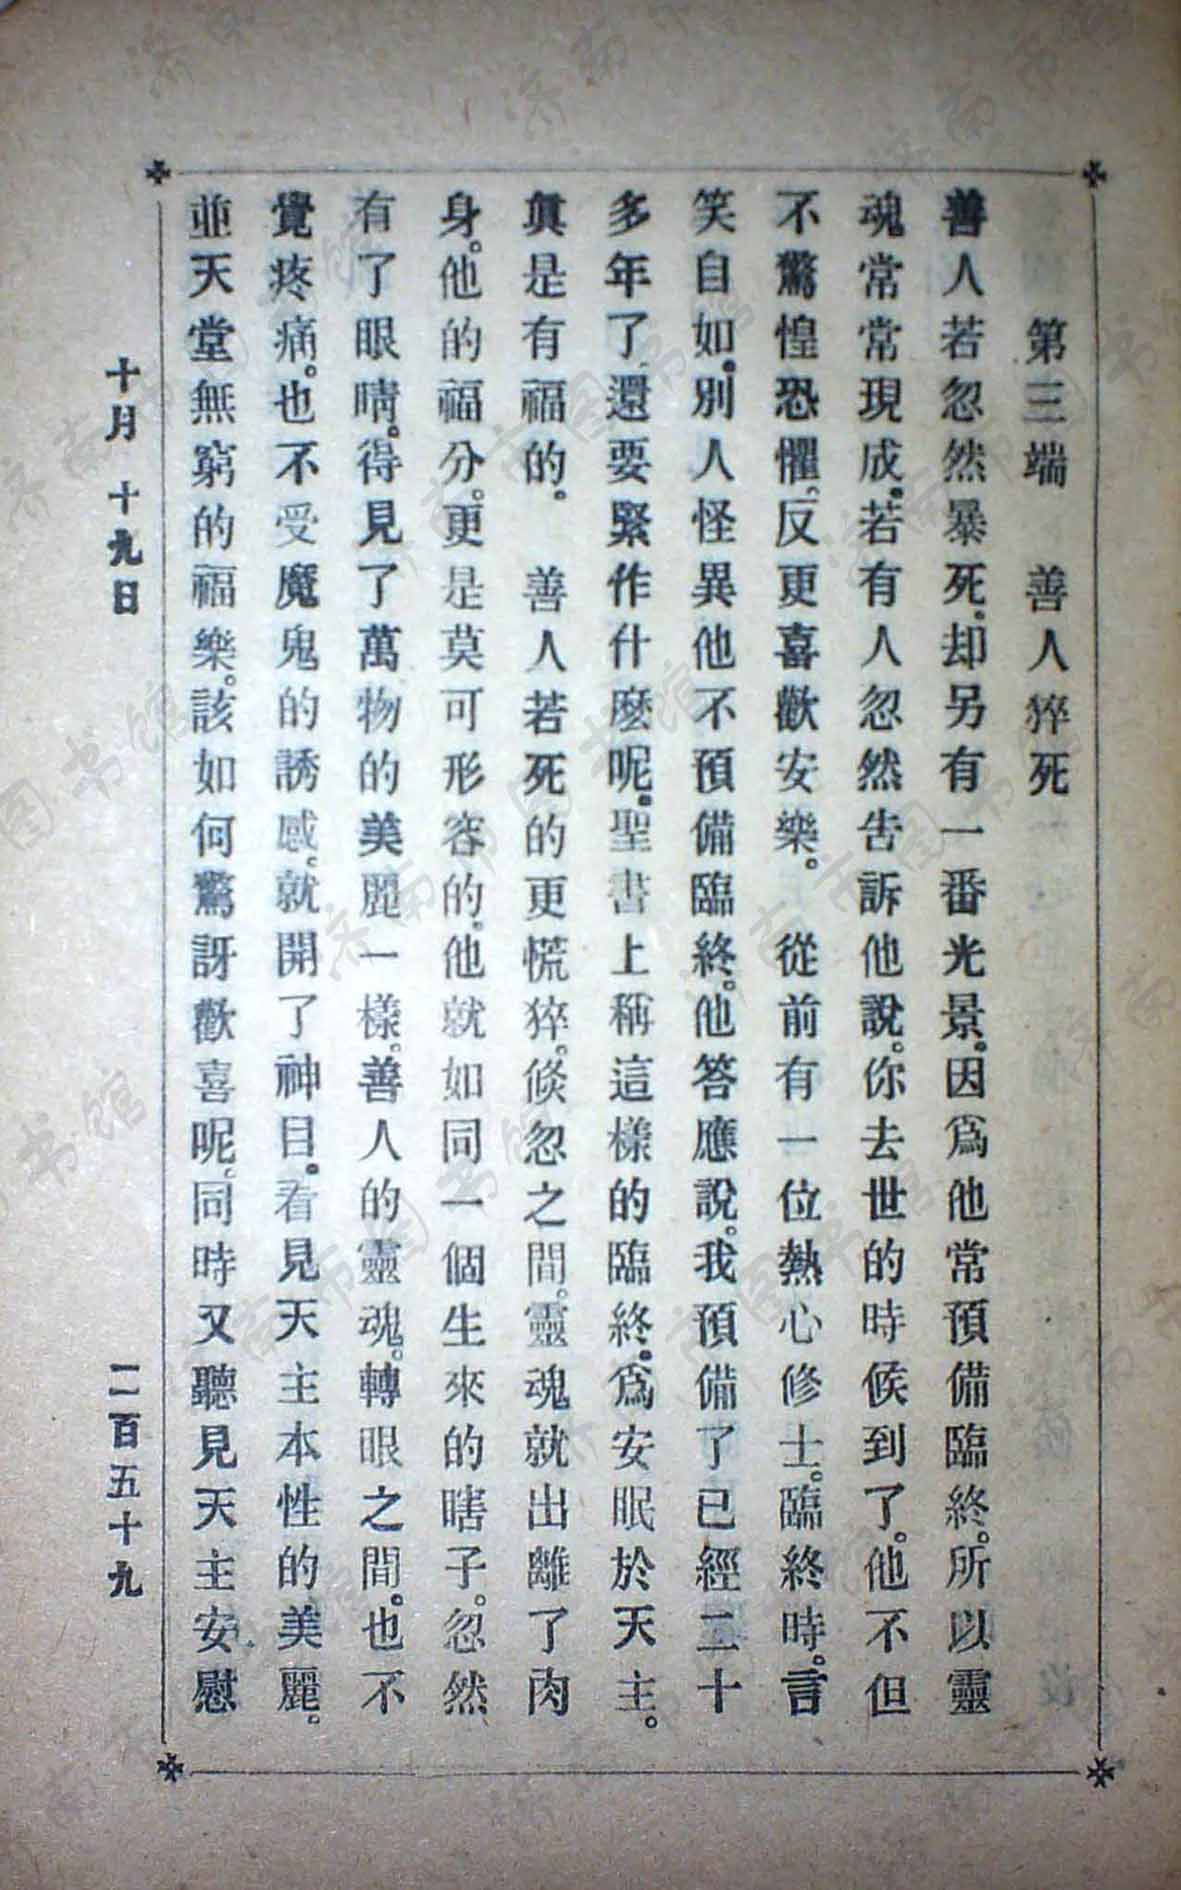 第三端　善人猝死
善人若忽然暴死。却另有一番光景。因爲他常預備臨終。所以靈
魂常常現成。若有人忽然告訴他說。你去世的時候到了。他不但
不驚惶恐懼。反更喜歡安樂。　從前有一位熱心修士。臨終時。言
笑自如。別人怪異他不預備臨終。他答應說。我預備了已經二十
多年了。還要緊作什麽呢。聖書上稱這樣的臨終。爲安眠於天主。
眞是有福的。　善人若死的更慌猝。倏忽之間。靈魂就出離了肉
身。他的福分。更是莫可形容的。他就如同一個生來的瞎子。忽然
有了眼睛。得見了萬物的美麗一樣。善人的靈魂。轉眼之間。也不
覺疼痛。也不受魔鬼的誘感。就開了神目。看見天主本性的美麗。
並天堂無窮的福樂。該如何驚訝歡喜呢。同時又聽見天主安慰
十月十九日
二百五十九
济南市图书馆